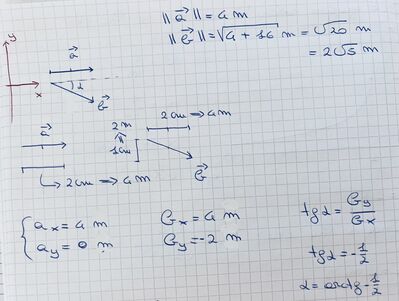 || a⃗ || = 4 m
|| b⃗ || = √4 + 16 m = √20 m
= 2√5 m
y
a⃗
x
α
b⃗
a⃗
2 cm ⇒ 4 m
2 m
⇑
1 cm
2 cm ⇒ 4 m
b⃗
{ ax = 4 m
ay = 0 m
bx = 4 m
by = -2 m
tg α = by/bx
tg α = - 1/2
α = arctg - 1/2